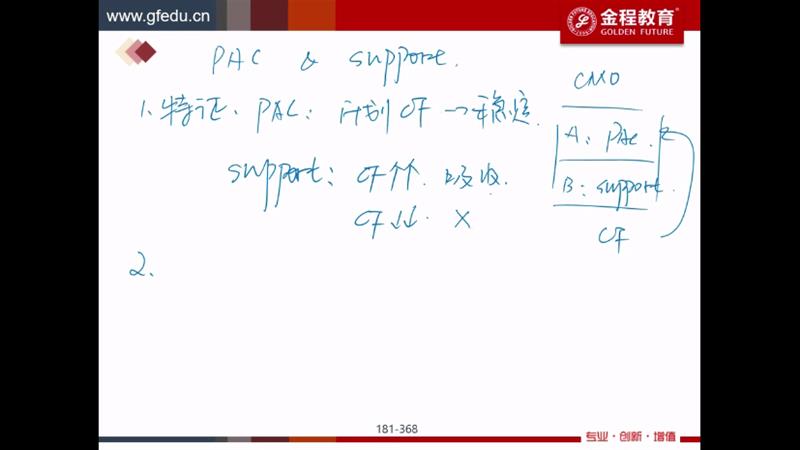 www.gfedu.cn
金程教育
GOLDEN FUTURE
PAC & support.
1. 特证、PAC: 计划 CF → 稳定.
support: CF↑↑. 吸收.
CF↓↓. X
CMO
A: PAC.
B: support.
CF
2.
181-368
专业·创新·增值